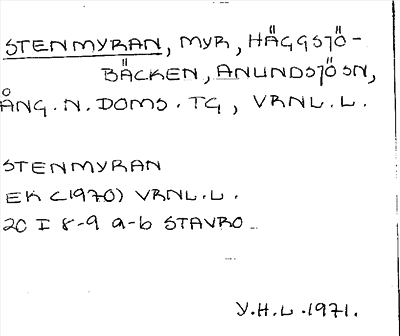 STENMYRAN, MYR, HÄGGSJÖ-
BÄCKEN, ANUNDSJÖ SN,
ÅNG. N. DOMS. TG, VRNL. L.
STENMYRAN
EK (1970) VRNL. L.
20 I 8-9 a-b STAVRO
Y.H.L. 1971.